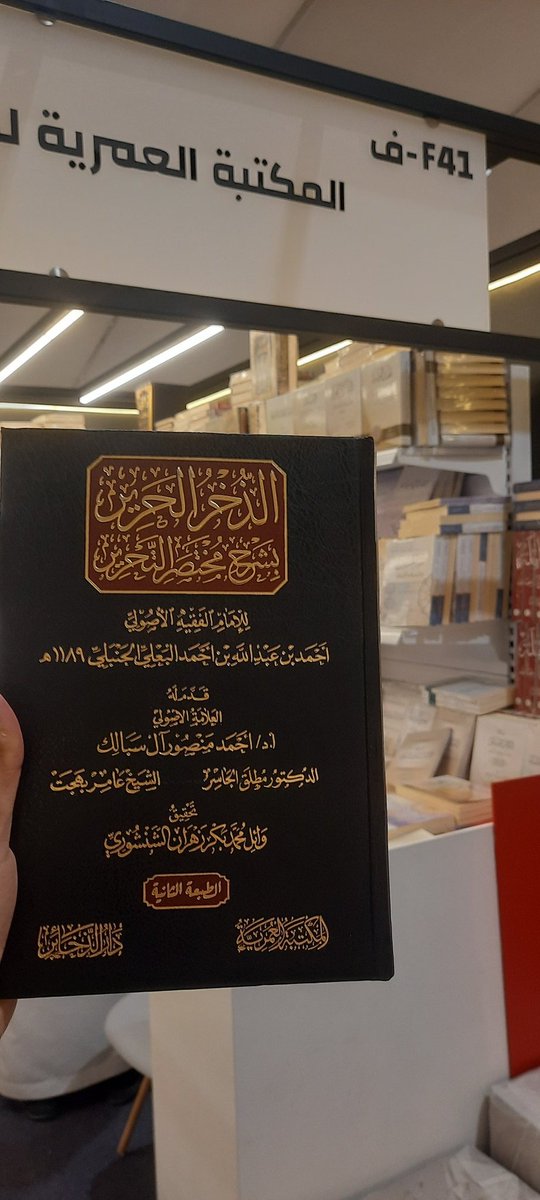 F41-ف
المكتبة العمرية ل
الذُّخْرُ الحَرِيرِ
بِشَرْحِ مُخْتَصَرِ التَّحْرِيرِ
لِلإِمَامِ الفَقِيهِ الأُصُولِيِّ
أَحْمَد بْن عَبْدِ اللهِ بْن أَحْمَد البَعْلِيِّ الحَنْبَلِيِّ ١١٨٩هـ
قَدَّمَ لَهُ
العَلَّامَةُ الأُصُولِيُّ
أ.د/ أحمد منصور آل سبالك
الدكتور مطلق الجاسر
الشيخ عامر بهجت
تحقيق
وائل محمد بكر زهران الشنشوري
الطبعة الثانية
المكتبة العمرية
دار الذخائر